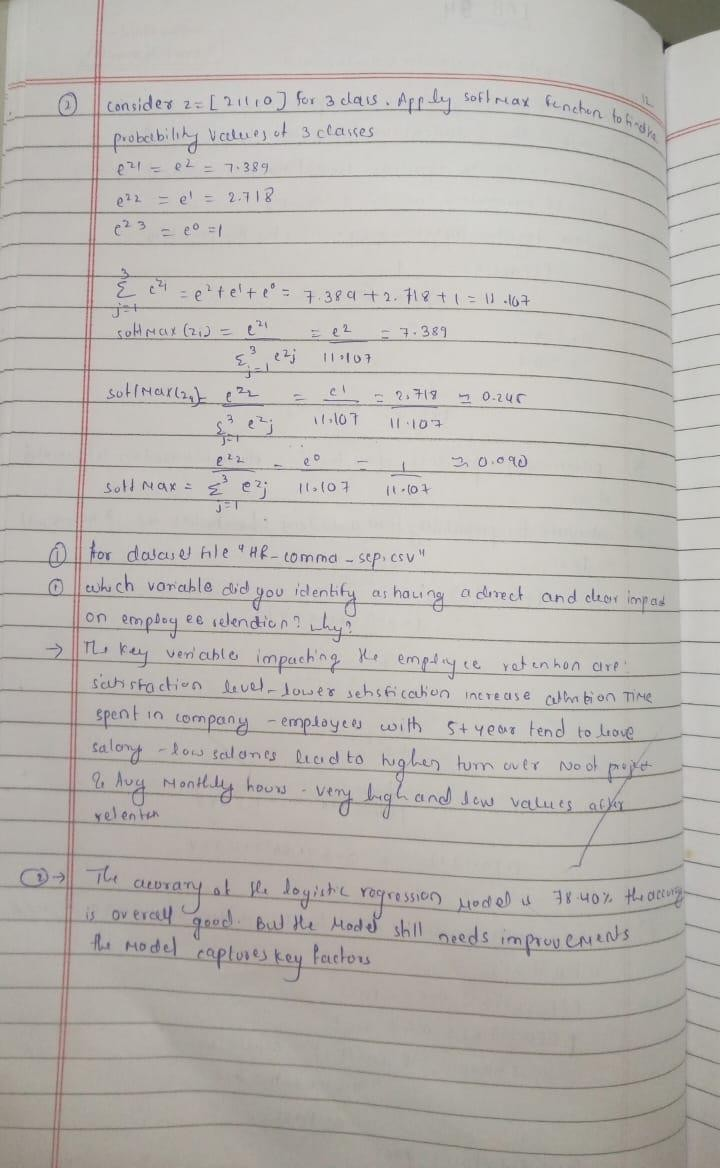 ② consider z = [2 1 1 1 0] for 3 class. Apply softmax function to find the
probability values of 3 classes
e^z1 = e^2 = 7.389
e^z2 = e^1 = 2.718
e^z3 = e^0 = 1
3
Σ e^zj = e^2 + e^1 + e^0 = 7.389 + 2.718 + 1 = 11.107
j=1
softmax (z1) = e^z1 / Σ^3 j=1 e^zj = e^2 / 11.107 = 7.389
softmax(z2) = e^z2 / Σ^3 j=1 e^zj = e^1 / 11.107 = 2.718 / 11.107 ≈ 0.245
softmax = e^z2 / Σ^3 j=1 e^zj = e^0 / 11.107 = 1 / 11.107 ≈ 0.090
① for dataset file "HR-comma-sep.csv"
① which variable did you identify as having a direct and clear impact
on employee retention? why?
→ The key variable impacting the employee retention are:
satisfaction level - lower satisfaction increase attrition Time
spent in company - employees with 5+ years tend to leave
salary - low salaries lead to higher turn over No of project
& Avg Monthly hours - very high and low values
retention
②→ The accuracy of the logistic regression Model is 78.40% the accuracy
is overall good. But the Model still needs improvements
the Model captures key factors